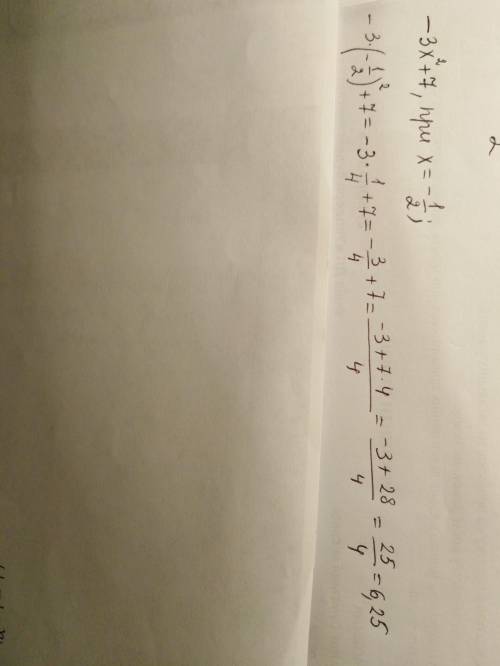 -3x²+7, при x = -1/2;
-3·(-1/2)²+7 = -3·1/4+7 = -3/4+7 = (-3+7·4)/4 = (-3+28)/4 = 25/4 = 6,25
2